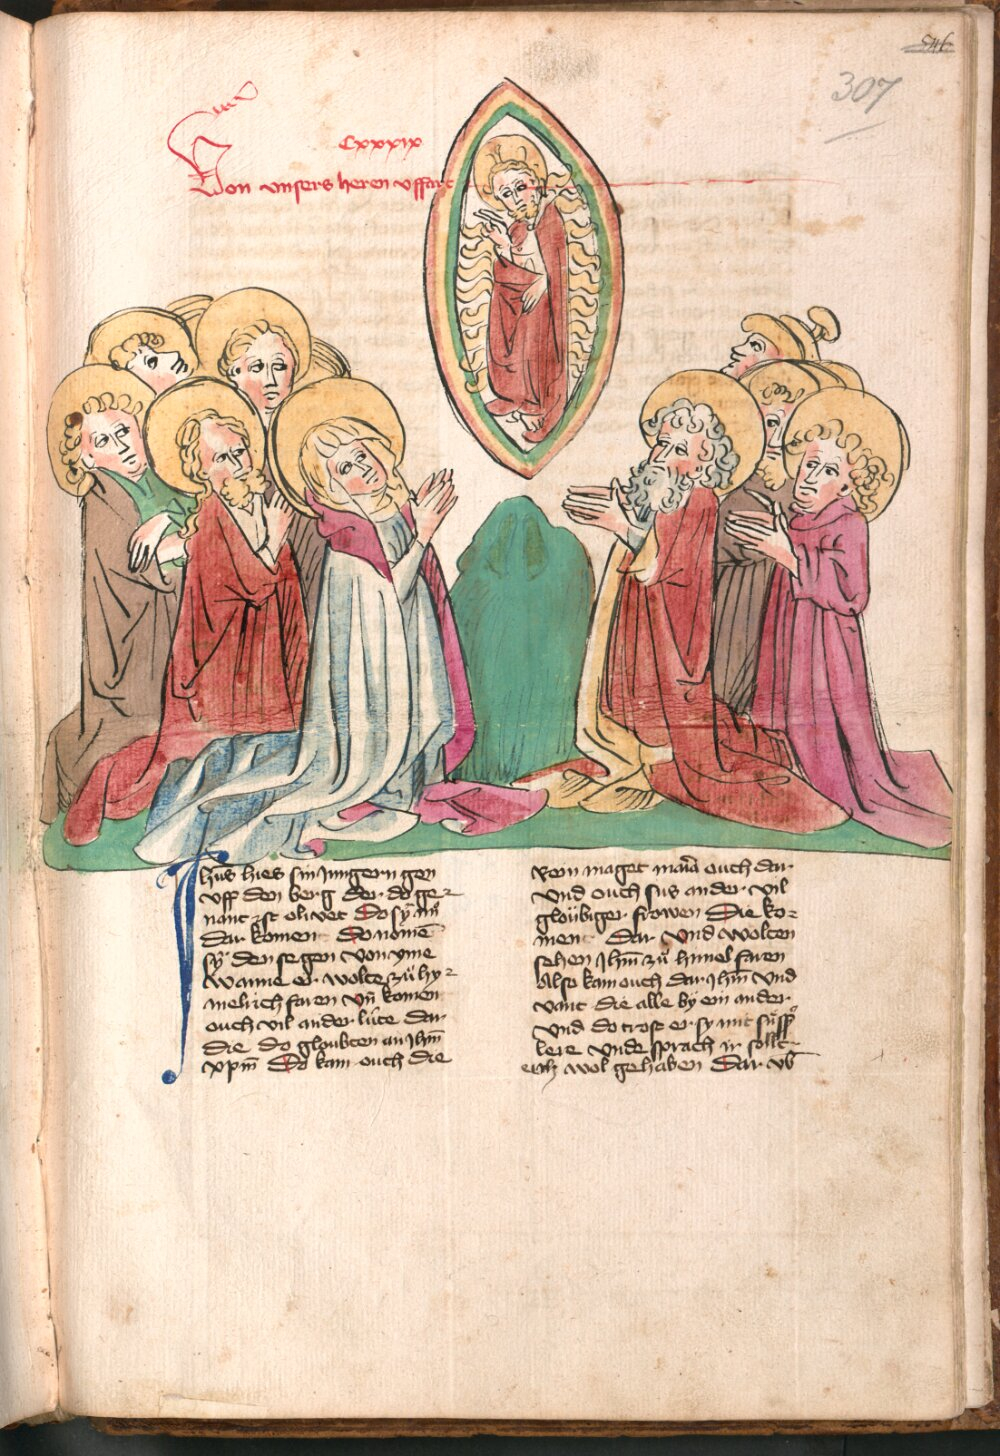 307
Cxxxix
Von vnsers heren vffart
Jhus hies sin Jungern gen
vff den berg der do ge-
nant ist olivet Do sÿ nū
dar komen Do nomē
sÿ den segen von yme
wanne er wolte zů hy-
melrich faren vn̄ komen
ouch vil ander lúte dar
die do gloubten an Jhm̄
xpm̄ Do kam ouch die
Rein maget maīa ouch dar
vnd ouch sus ander vil
gloubiger frowen Die ko-
men Dar vnd wolten
sehen Jhm̄ zů himel faren
Also kam ouch dar Jhm̄ vnd
vant die alle by ein ander
vnd do trost er sy mit
leie vnde sprach ir sollt
uch wol gehaben Dar vb